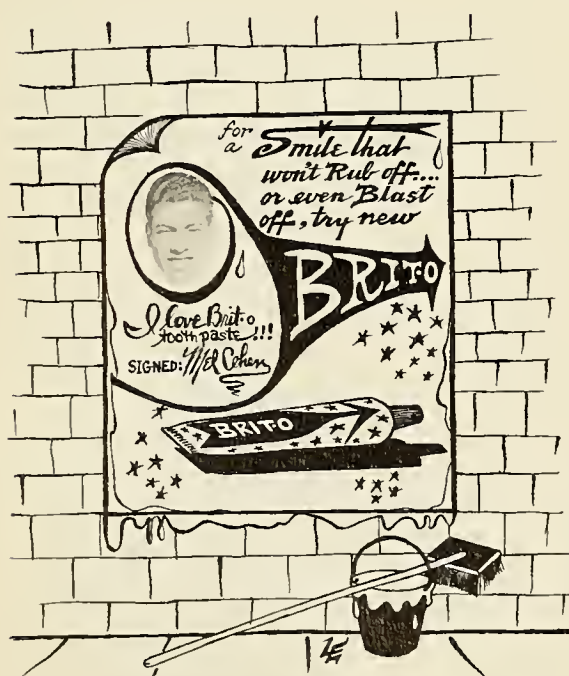 for
a Smile that
won't Rub off....
or even Blast
off, try new
BRIT-O
I love Brit-o
tooth paste!!!
SIGNED: Mel Cohen
BRIT-O